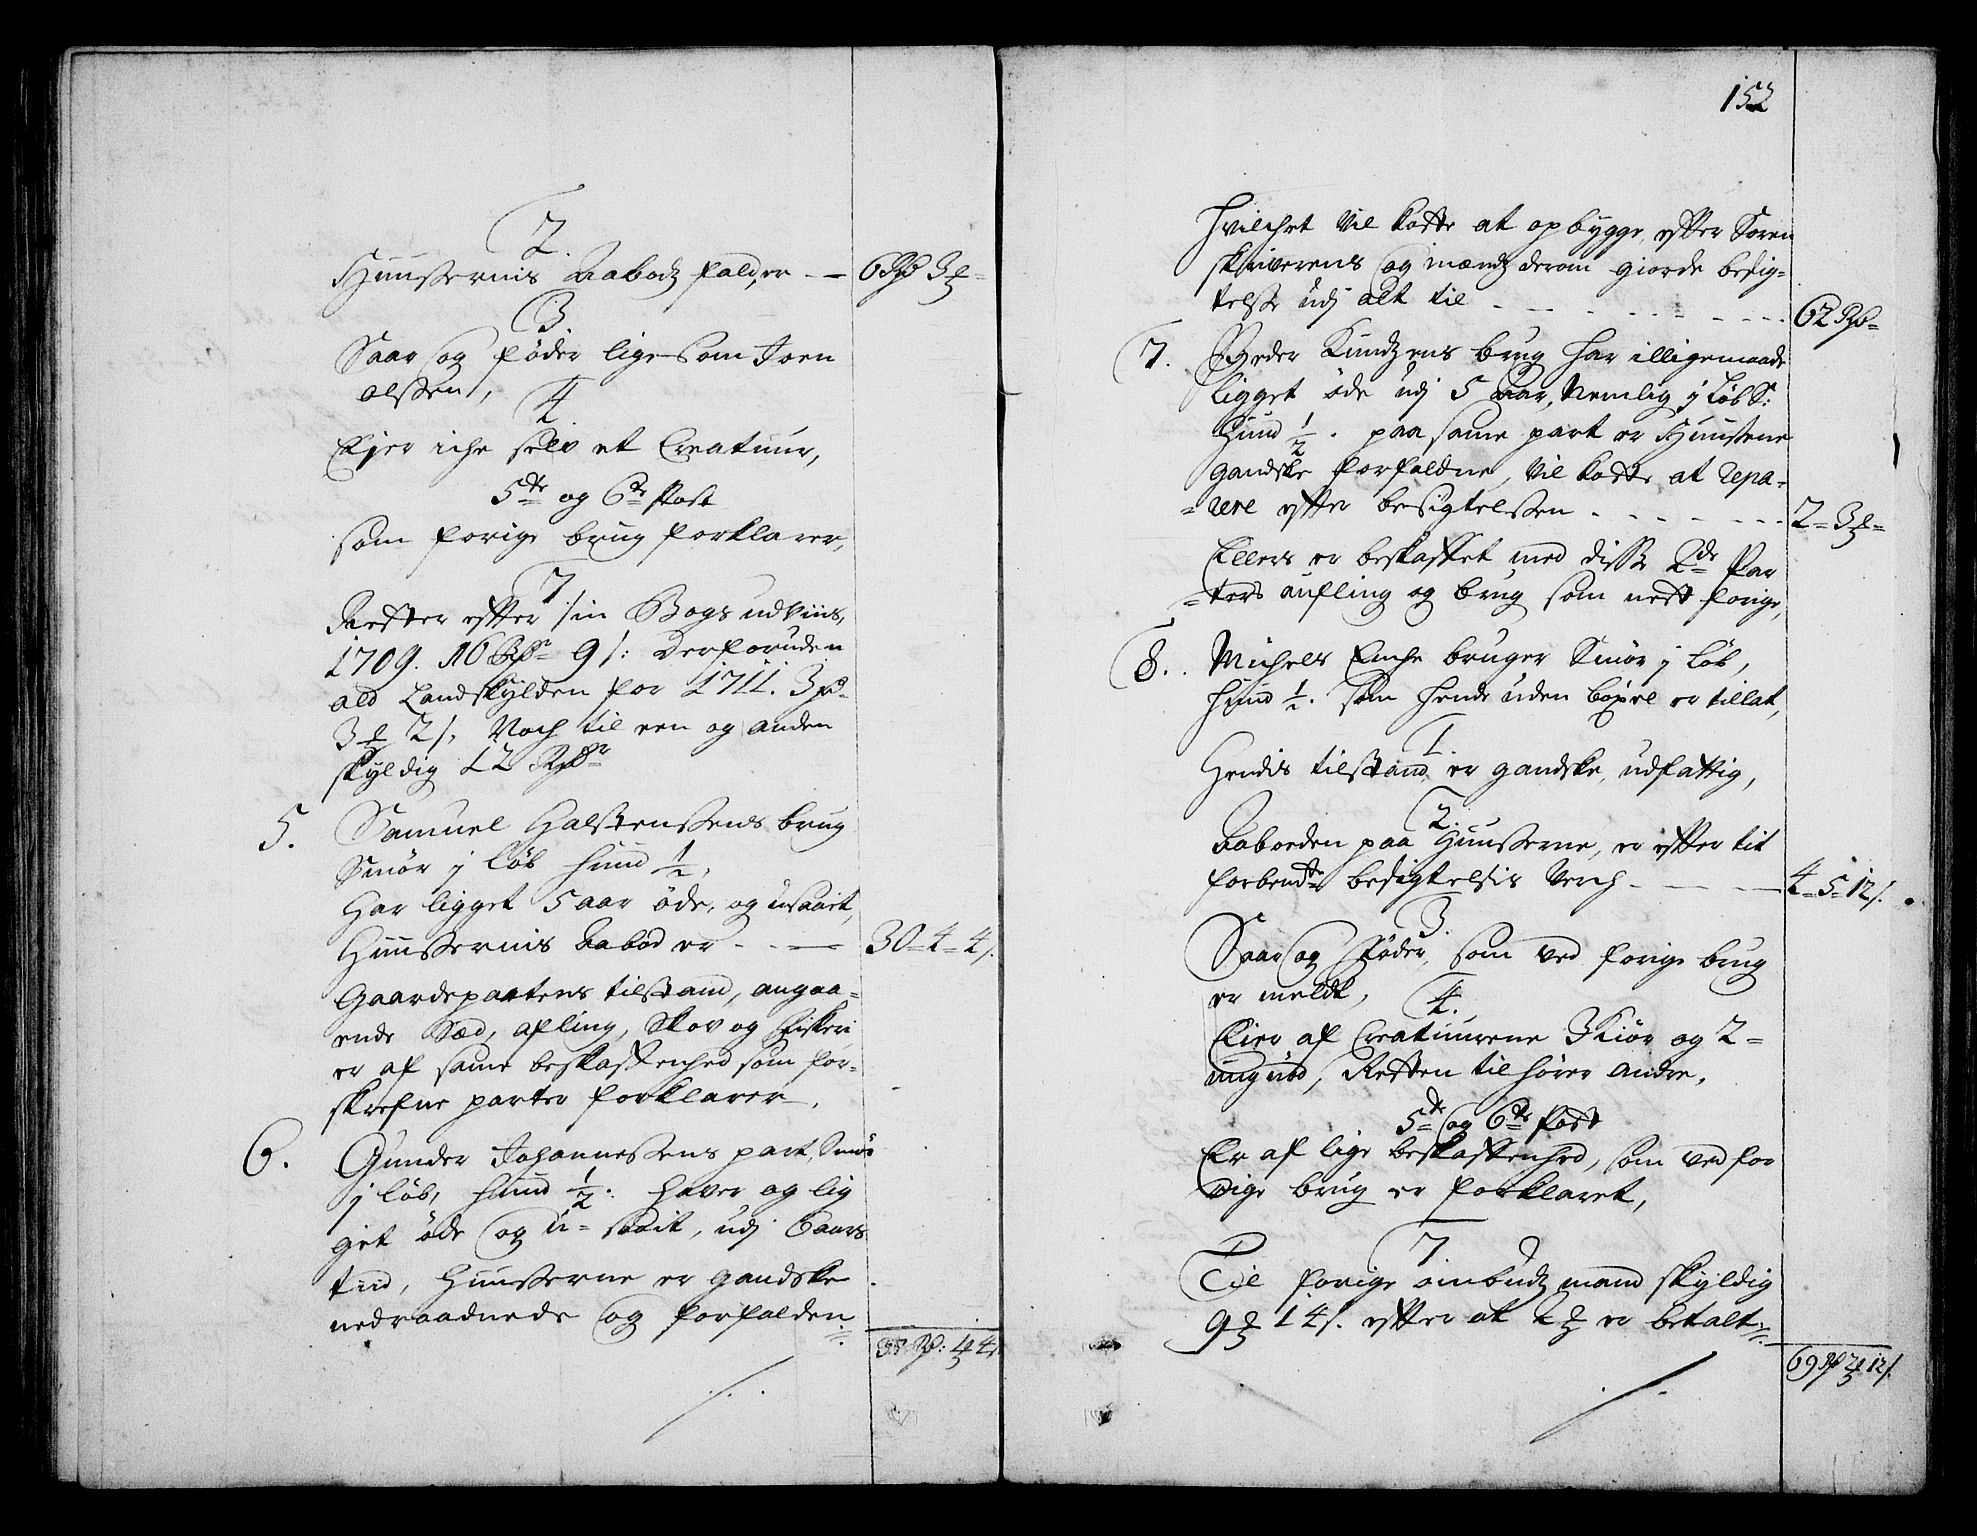 2.
Huussernis Aabodz falder - - 6 Rdr 3 ℔ -
3
Saar og føder lige som Joen
olssen,
4
Ejer iche selv et Creatuur,
5te og 6te Post
som forige brug forklarer,
7
Rester efter sin Bogs udviis,
1709. 16 Rdr 9 s: Derforuden
ald Landskylden for 1711. 3 Rd
3 ℔ 2 s, Noch til een og anden
skyldig 12 Rdr
5. Samuel Halstenssens brug
Smør j Løb hund ½,
Har ligget 5 aar øde, og usaait,
Huussernis Aabod er - - - 30 - 4 - 4 s.
Gaardepartens tilstand, angaa-
ende Sæd, afling, Skov og Fiskeri
er af same beskaffenhed som for-
skrefne parter forklarer.
6. Gunder Johannessens part, Smør
j Løb, hund ½: haver og lig
get øde og u-saait, udj 6 aars
tiid, Huusserne er gandske
nedraadnede og forfalden
37 Rd: 1 4 s
152
hvilchet vil koste at opbygge, efter Soren
skriverens og mændz derom giorde besig-
telse udj alt til - - - - - - 62 Rdr -
7. Peder Kundzens brug har illigemaade
ligget øde udj 5 aar, Nemlig j Løb S:
hund ½. paa same part er Huusene
gandske forfaldne, vil koste at repa-
-rere efter besigtelssen - - - - - - 2 - 3 ℔ -
Ellers er beskaffet med disse 2de Par
-ters aufling og brug som nest forige,
8. Michels Enche bruger Smør j Løb,
hund ½. som hende uden böxel er tillat,
1.
Hendis tilstand er gandske, udfattig,
2.
Aaboeden paa Huusserne, er efter tit
forbendte besigtelsis Verch - - - - 4 - 5 - 12 s.
3.
Saar og Føder, som ved forige brug
er meldt,
4.
Eier af Creaturene 3 Kiør og 2 -
ungnöd, Resten tilhører andre,
5te og 6te Post
Er af lige beskaffenhed, som ved for
rige brug er forklaret,
7.
Til forige ombudz mand skyldig
9 ℔ 14 s. efter at 2 ℔ er betalt
69 Rd 2 12 s.